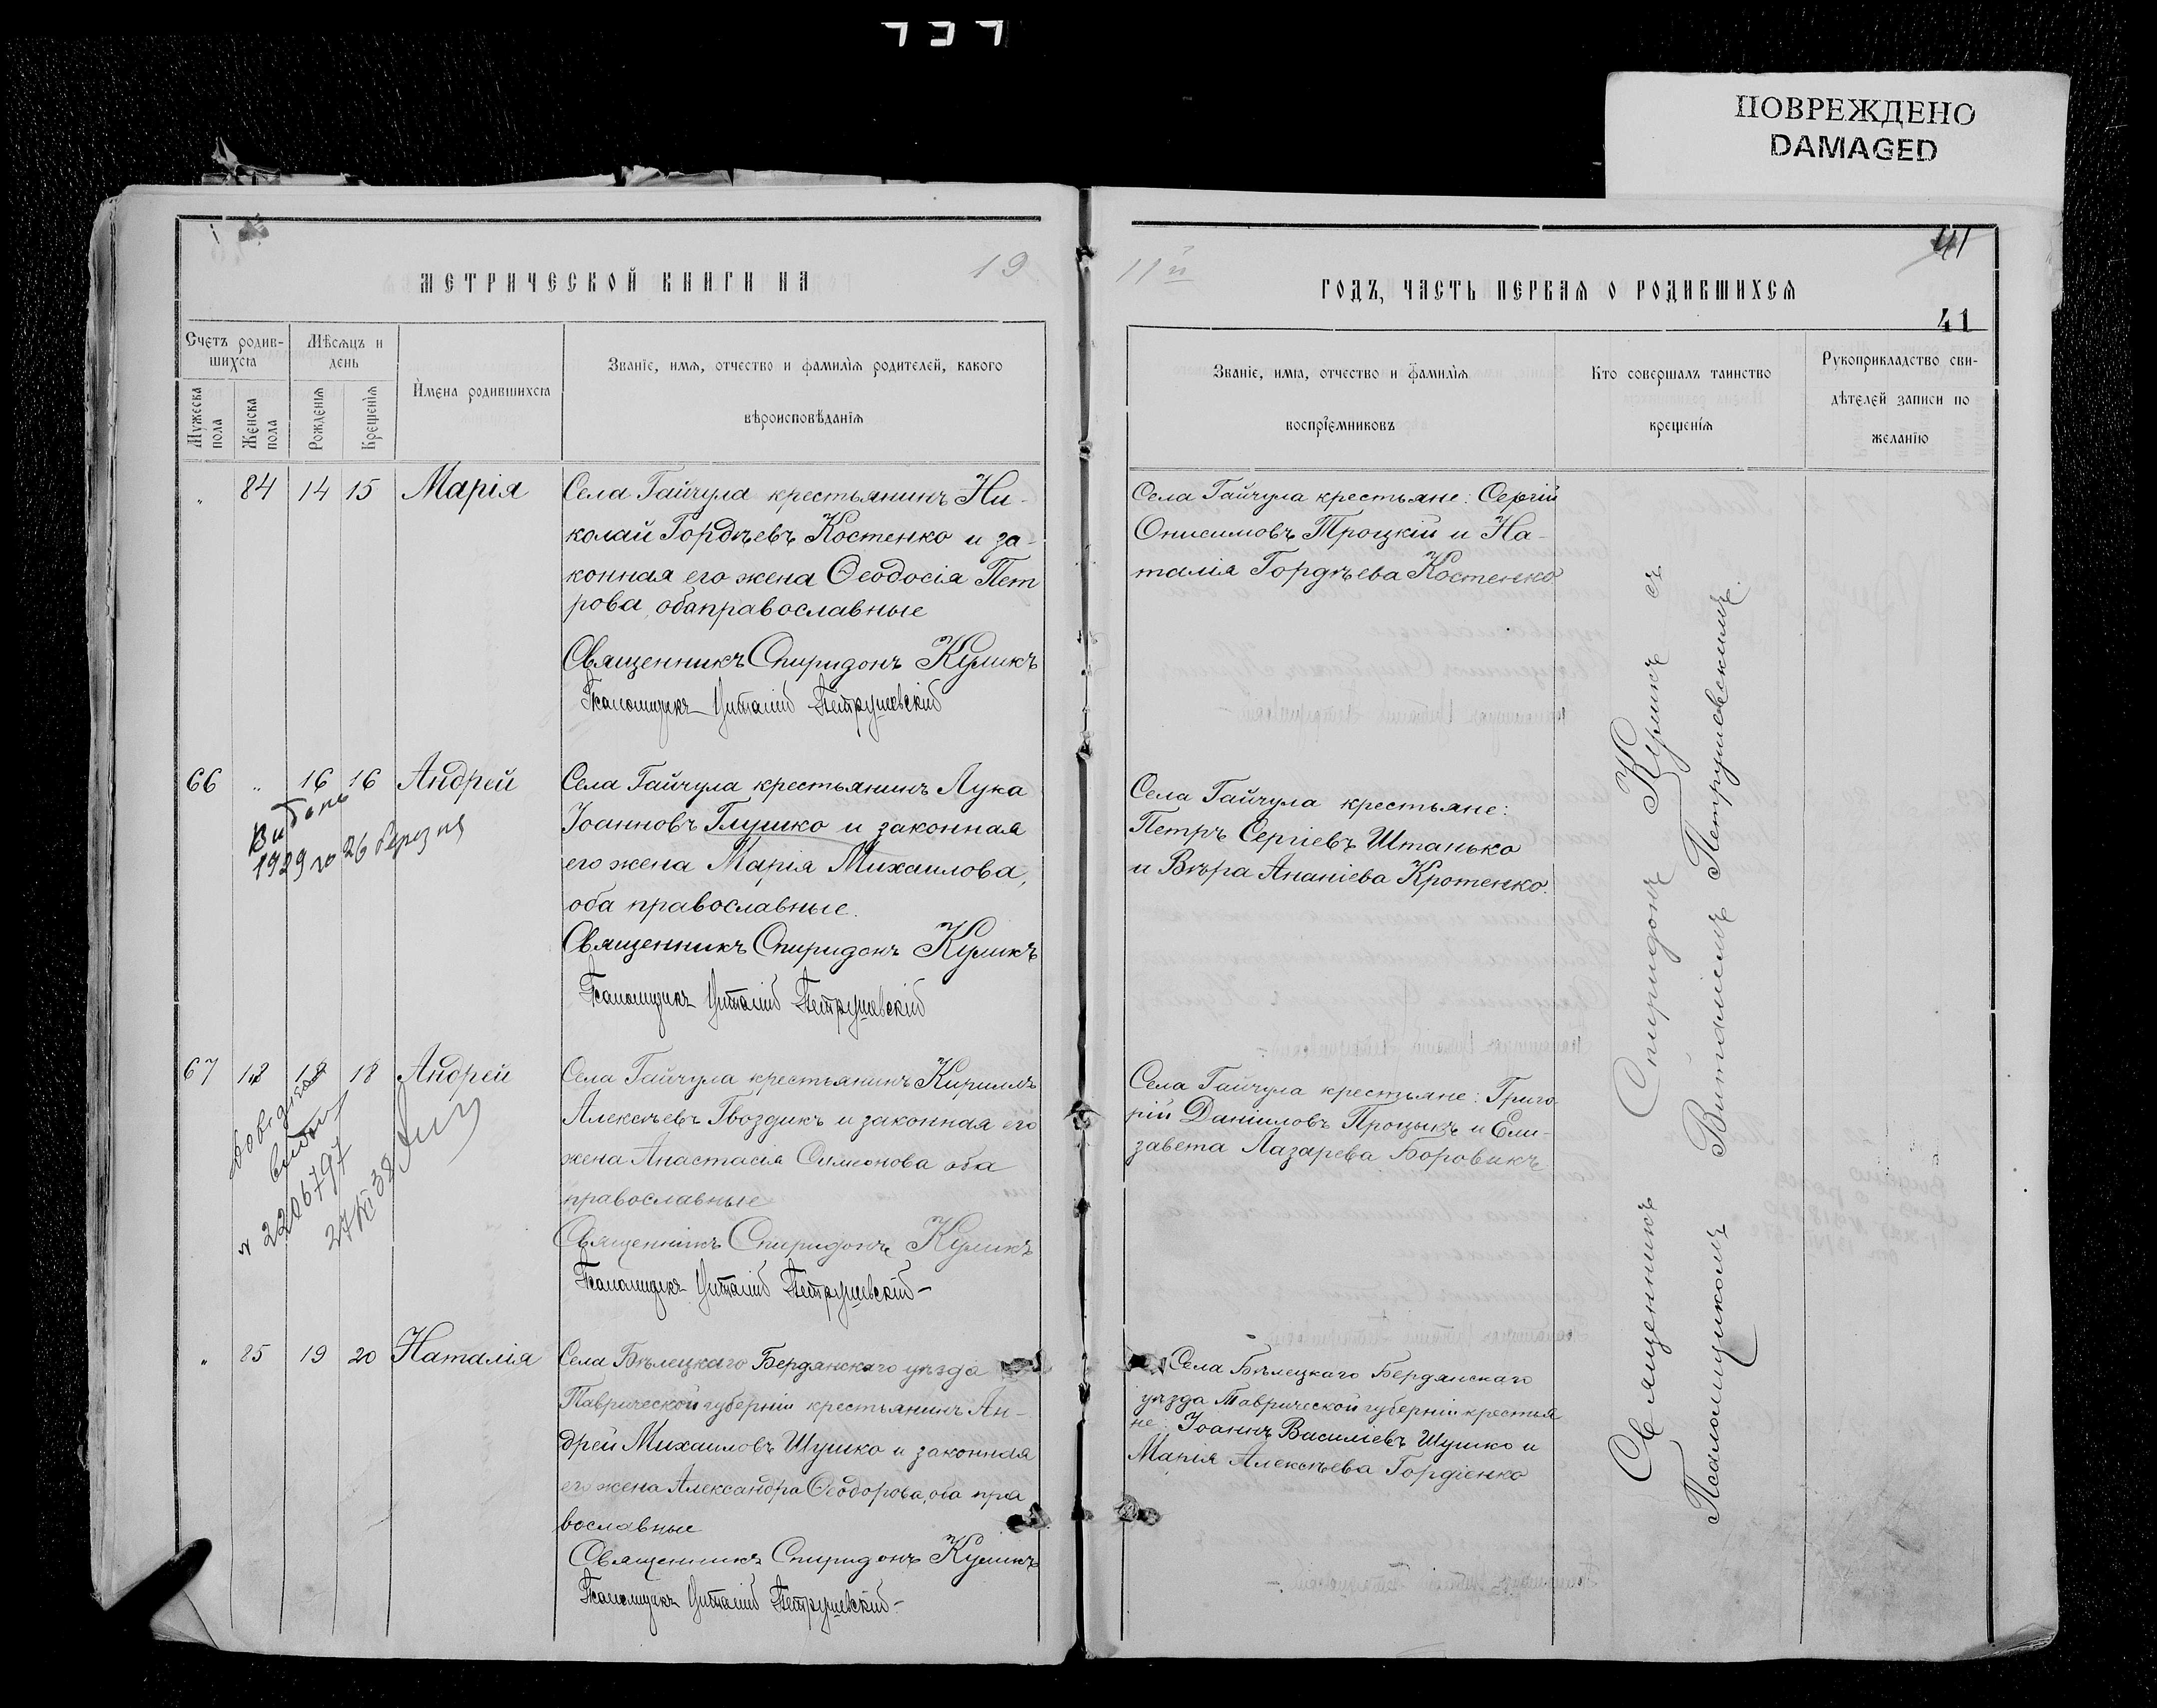 ПОВРЕЖДЕНО
DAMAGED
МЕТРИЧЕСКОЙ КНИГИ НА 19
11й ГОДЪ, ЧАСТЬ ПЕРВАЯ О РОДИВШИХСЯ
41
41
Счетъ родив-
шихся
Мѣсяцъ и
день
Мужеска
пола
Женска
пола
Рожденія
Крещенія
Имена родившихся
Званіе, имя, отчество и фамилія родителей, какого
вѣроисповѣданія
Званіе, имя, отчество и фамилія
воспріемниковъ
Кто совершалъ таинство
крещенія
Рукоприкладство сви-
дѣтелей записи по
желанію
" 84 14 15 Марія
Села Гайчула крестьянинъ Ни-
колай Гордѣевъ Костенко и за-
конная его жена Ѳеодосія Пет
рова, оба православные
Священникъ Спиридонъ Куликъ
Псаломщикъ Виталій Петрушевскій
Села Гайчула крестьяне: Сергій
Онисимовъ Троцкій и На-
талія Гордѣева Костенко
66 " 16 16 Андрей
Видань
1929 го 26 березня
Села Гайчула крестьянинъ Лука
Іоанновъ Глушко и законная
его жена Марія Михаилова,
оба православные.
Священникъ Спиридонъ Куликъ
Псаломщикъ Виталій Петрушевскій
Села Гайчула крестьяне:
Петръ Сергіевъ Штанько
и Вѣра Ананіева Кротенко.
67 18 18 18 Андрей
2206797
38
Села Гайчула крестьянинъ Кириллъ
Алексѣевъ Гвоздикъ и законная его
жена Анастасія Симеонова оба
православные
Священникъ Спиридонъ Куликъ
Псаломщикъ Виталій Петрушевскій
Села Гайчула крестьяне: Григо
рій Даніиловъ Процыкъ и Ели-
завета Лазарева Боровикъ
" 85 19 20 Наталія
Села Бѣлецкаго Бердянскаго уѣзда
Таврической губерніи крестьянинъ Ан-
дрей Михаиловъ Шушко и законная
его жена Александра Ѳеодорова, оба пра
вославные
Священникъ Спиридонъ Куликъ
Псаломщикъ Виталій Петрушевскій
Села Бѣлецкаго Бердянскаго
уѣзда Таврической губерніи крестья
не: Іоаннъ Василіевъ Шушко и
Марія Алексѣева Гордіенко
Священникъ Спиридонъ Куликъ съ
Псаломщикомъ Виталіемъ Петрушевскимъ.